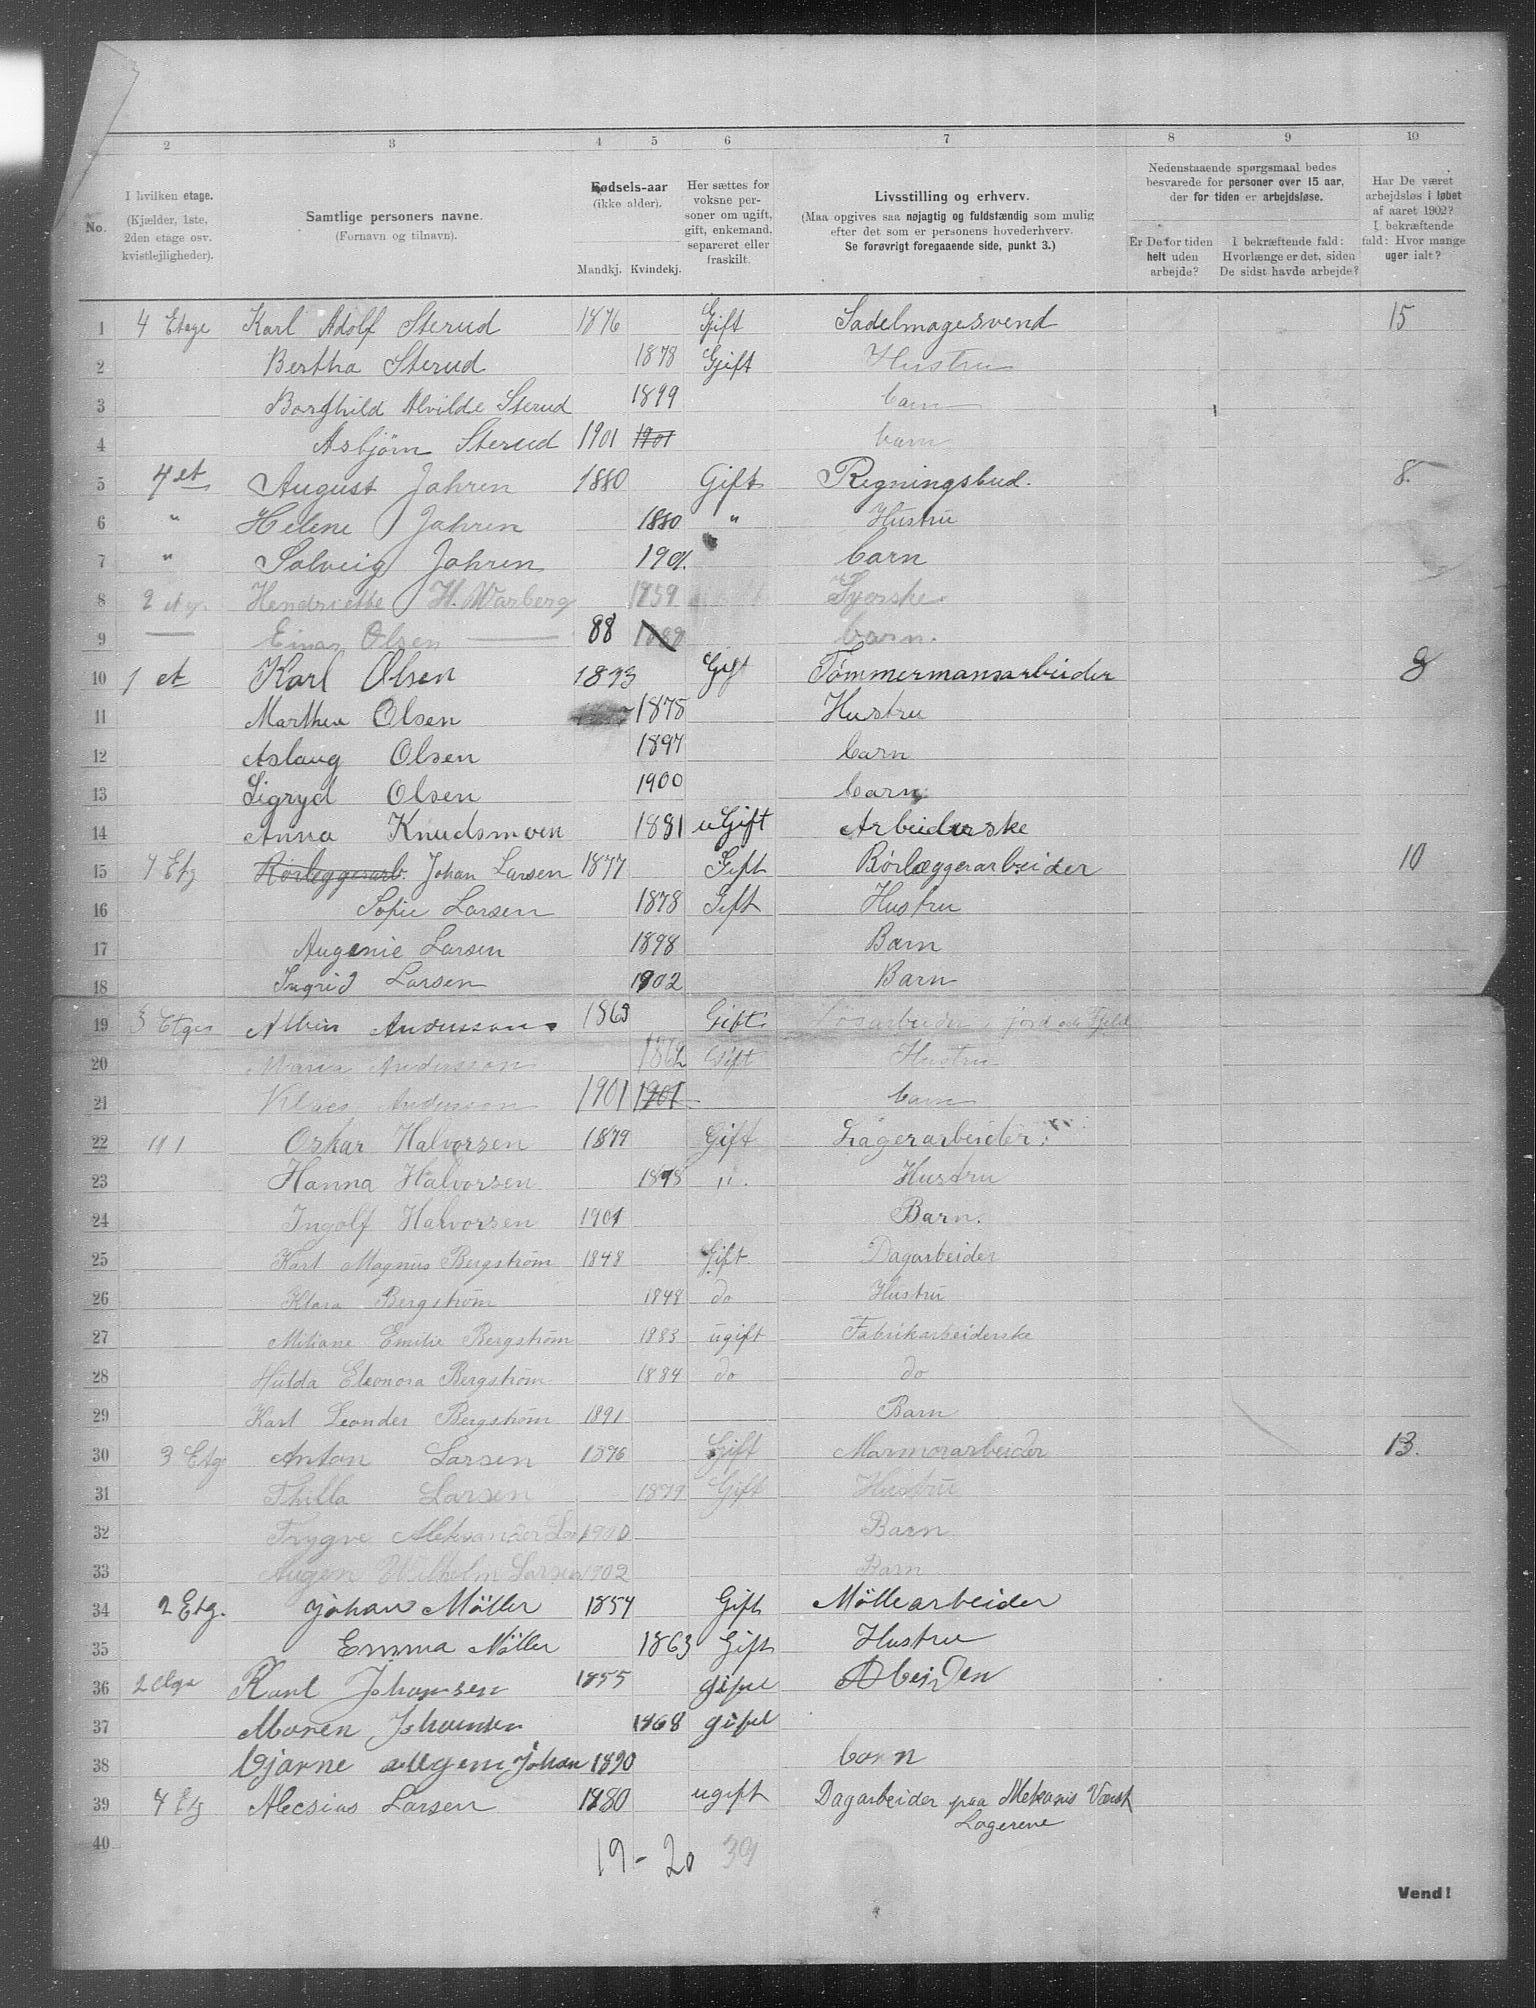 2 3 4 5 6 7 8 9 10
No.
I hvilken etage. (Kjælder, 1ste, 2den etage osv. kvistlejligheder).
Samtlige personers navne. (Fornavn og tilnavn).
Fødsels-aar (ikke alder). Mandkj. Kvindekj.
Her sættes for voksne personer om ugift, gift, enkemand, separeret eller fraskilt.
Livsstilling og erhverv. (Maa opgives saa nøjagtig og fuldstændig som mulig efter det som er personens hovederhverv. Se forøvrigt foregaaende side, punkt 3.)
Nedenstaaende spørgsmaal bedes besvarede for personer over 15 aar, der for tiden er arbejdsløse.
Er De for tiden helt uden arbejde?
I bekræftende fald: Hvorlænge er det, siden De sidst havde arbejde?
Har De været arbejdsløs i løbet af aaret 1902? I bekræftende fald: Hvor mange uger ialt?
1 4 Etage Karl Adolf Sterud 1876 Gift Sadelmagesvend 15
2 Bertha Sterud 1878 Gjift Hustru
3 Borghild Alvilde Sterud 1899 barn
4 Asbjørn Sterud 1901 1901 barn
5 4 et August Jahren 1880 Gift Regningsbud. 8.
6 " Helene Jahren 1880 " Hustru
7 " Solveig Jahren 1901. barn
8 2 Hendriette H. Warberg 1859 Syerske
9 Einar Olsen 88 barn.
10 1 et Karl Olsen 1873 Gift Tømmermansarbeider 8
11 Marthea Olsen 1875 Hustru
12 Aslaug Olsen 1897 barn
13 Sigryd Olsen 1900 barn
14 Anna Knudsmoen 1881 uGift Arbeiderske
15 1 Etg Rørleggerarb. Johan Larsen 1877 Gift Rørlæggerarbeider 10
16 Sofie Larsen 1878 Gift Hustru
17 Augenie Larsen 1898 Barn
18 Ingrid Larsen 1902 Barn
19 3 Etges Albin Andersson 1863 Gift Løsarbeider i jord og Fjeld
20 Maria Andersson 1862 Gift Hustru
21 Klaes Andersson 1901 1901 barn
22 Oskar Halvorsen 1879 Gift Lagerarbeider
23 Hanna Halvorsen 1878 " Hustru
24 Ingolf Halvorsen 1901 Barn.
25 Karl Magnus Bergstrøm 1848 Gift Dagarbeider
26 Klara Bergstrøm 1848 do Hustru
27 Miliane Emilie Bergstrøm 1883 ugift Fabrikarbeiderske
28 Hulda Eleonora Bergstrøm 1884 do do
29 Karl Leander Bergstrøm 1891 Barn
30 3 Etg Anton Larsen 1876 Gift Marmorarbeider 13.
31 Thilla Larsen 1879 Gift Hustru
32 Trygve Aleksander Lar 1900 Barn
33 Augen Wilhelm Larsen 1902 Barn
34 2 Etg. Johan Möller 1854 Gift Möllearbeider
35 Emma Möller 1863 Gift Hustru
36 2 Etge Karl Johansen 1855 gift
37 Maren Johansen 1868 gift
38 Bjarne Augen Johan 1890 barn
39 4 Etg Alecsius Larsen 1880 ugift Dagarbeider paa Mekanis Værst
Lagerene
40
19 - 20 39
Vend!